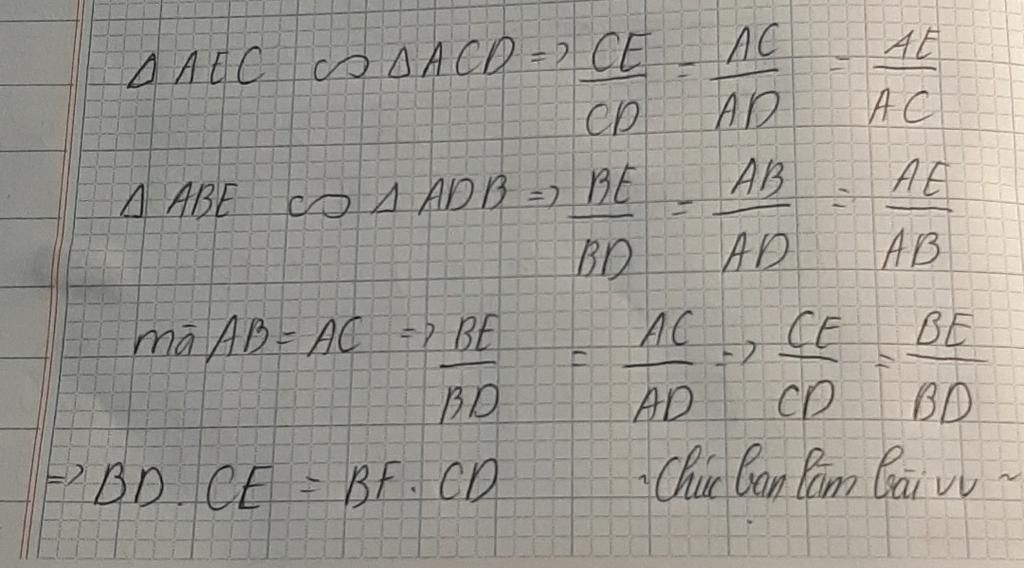 Δ AEC ∽ Δ ACD => CE/CD = AC/AD = AE/AC
Δ ABE ∽ Δ ADB => BE/BD = AB/AD = AE/AB
mà AB = AC => BE/BD = AC/AD => CE/CD = BE/BD
=> BD . CE = BE . CD ~ Chúc bạn làm bài vv ~